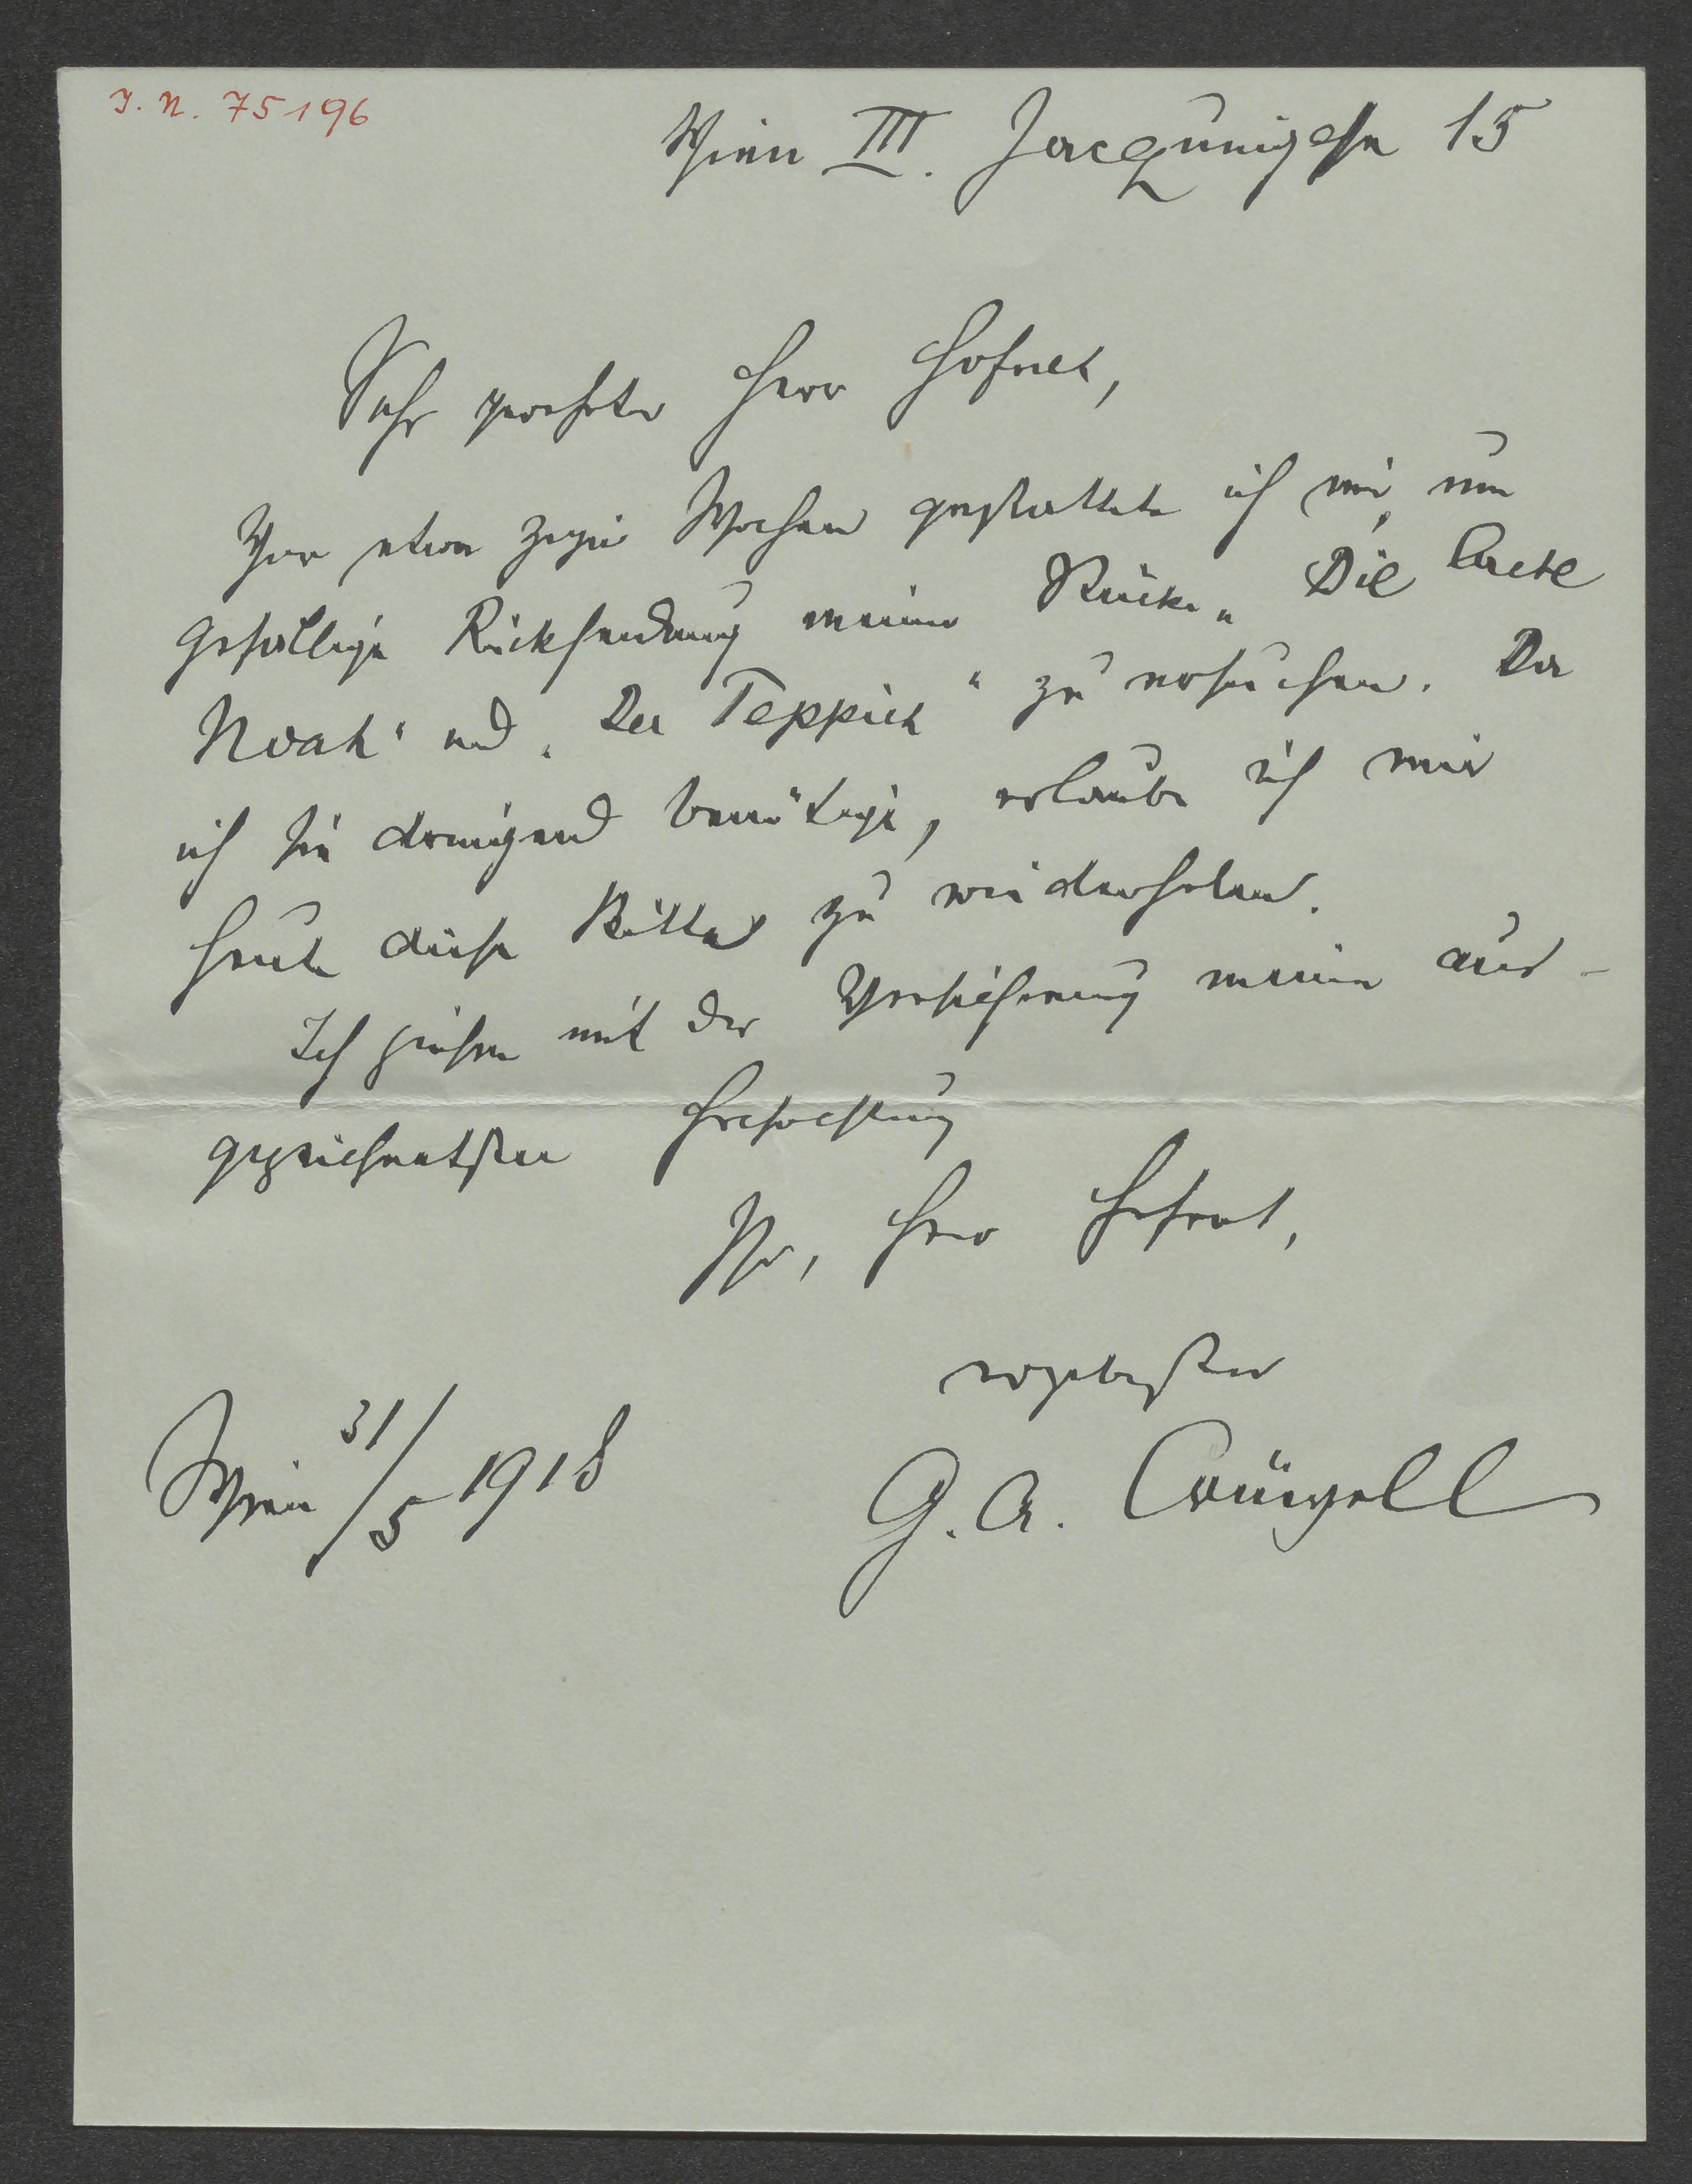 J. N. 75196
Wien III. Jacquingasse 15
Sehr geehrter Herr Hofrat,
Vor etwa zwei Wochen gestattete ich mir, um
gefällige Rücksendung meiner Stücke „Die Arche
Noah“ und „Der Teppich“ zu ersuchen. Da
ich sie dringend benötige, erlaube ich mir
heute diese Bitte zu wiederholen.
Ich zeichne mit der Versicherung meiner aus-
gezeichnetsten Hochachtung
Ihr, Herr Hofrat,
ergebenster
Wien 31/5 1918
G. A. Crüwell